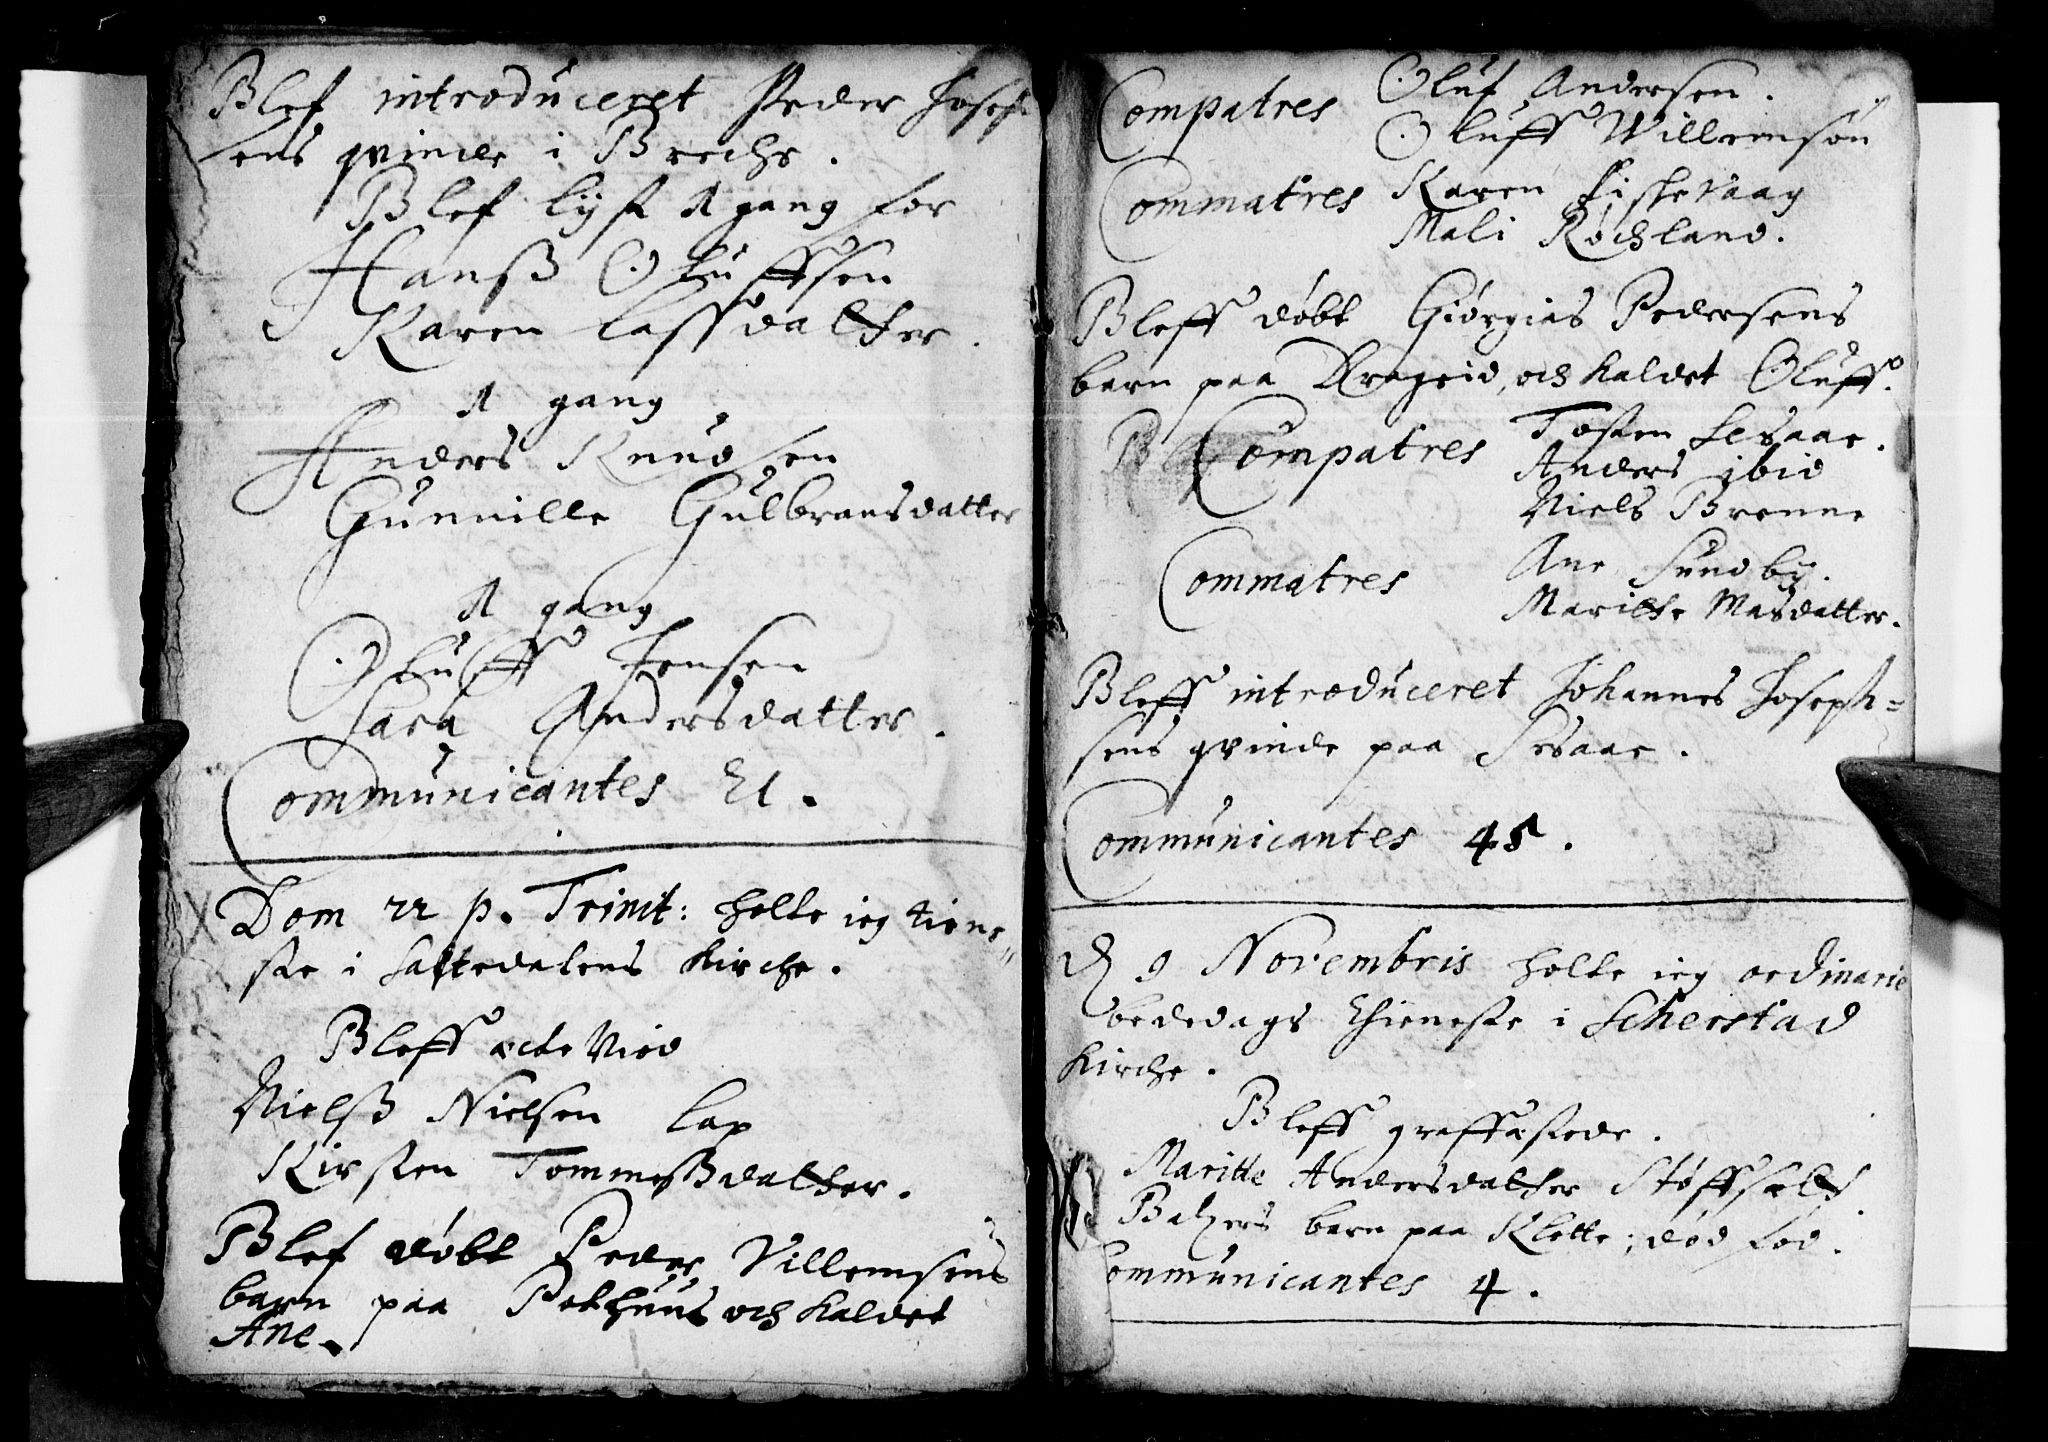 Blef introduceret Peder Joseph
sens qvinde i Brecke.
Blef lyst 1 gang for
Hanß Oluffsen
Karen Lassdatter.
1 gang
Anders Knudsen
Gunnille Gulbransdatter
1 gang
Oluff Jensen
Sara Andersdatter.
Communicantes 21.
Dom 22 p. Trinit: holte ieg tiene
ste i Saltedalens Kirche.
Bleff ecte Vied
Nielß Nielsen Lap
Kirsten Tommeßdatter.
Blef døbt Peder Villemsens
barn paa Pothuus och kaldet
Ane.
Compatres Oluf Andersen.
Oluff Willemsøn
Commatres Karen Fiskevaag
Mali Røchland.
Bleff døbt Giørgies Pedersens
barn paa Drageid, och kaldet Oluff.
Compatres Tosten Sesaae.
Anders ibid
Niels Brenne
Commatres Ane Sundby.
Maritte Masdatter.
Bleff introduceret Johannes Joseph=
sens qvinde paa Sesaae.
Communicantes 45.
D 9 Novembris holte ieg ordinarie
bededags thieneste i Scherstad
Kirche.
Bleff greffæstede.
Maritte Andersdatter Støffset
Balzers barn paa Klette; død fød.
Communicantes 4.